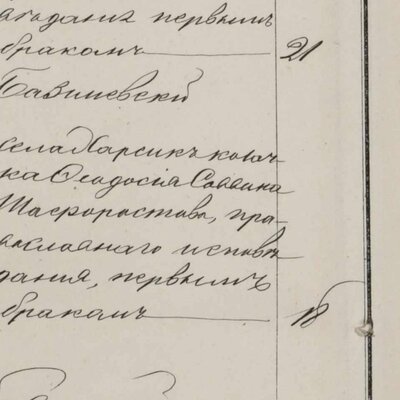 вѣданія первымъ
бракомъ 21
Базилевскій
села Харсикъ козач
ка Ѳеодосія Саввина
Шафоростова, пра-
вославнаго исповѣ
данія, первымъ
бракомъ 18